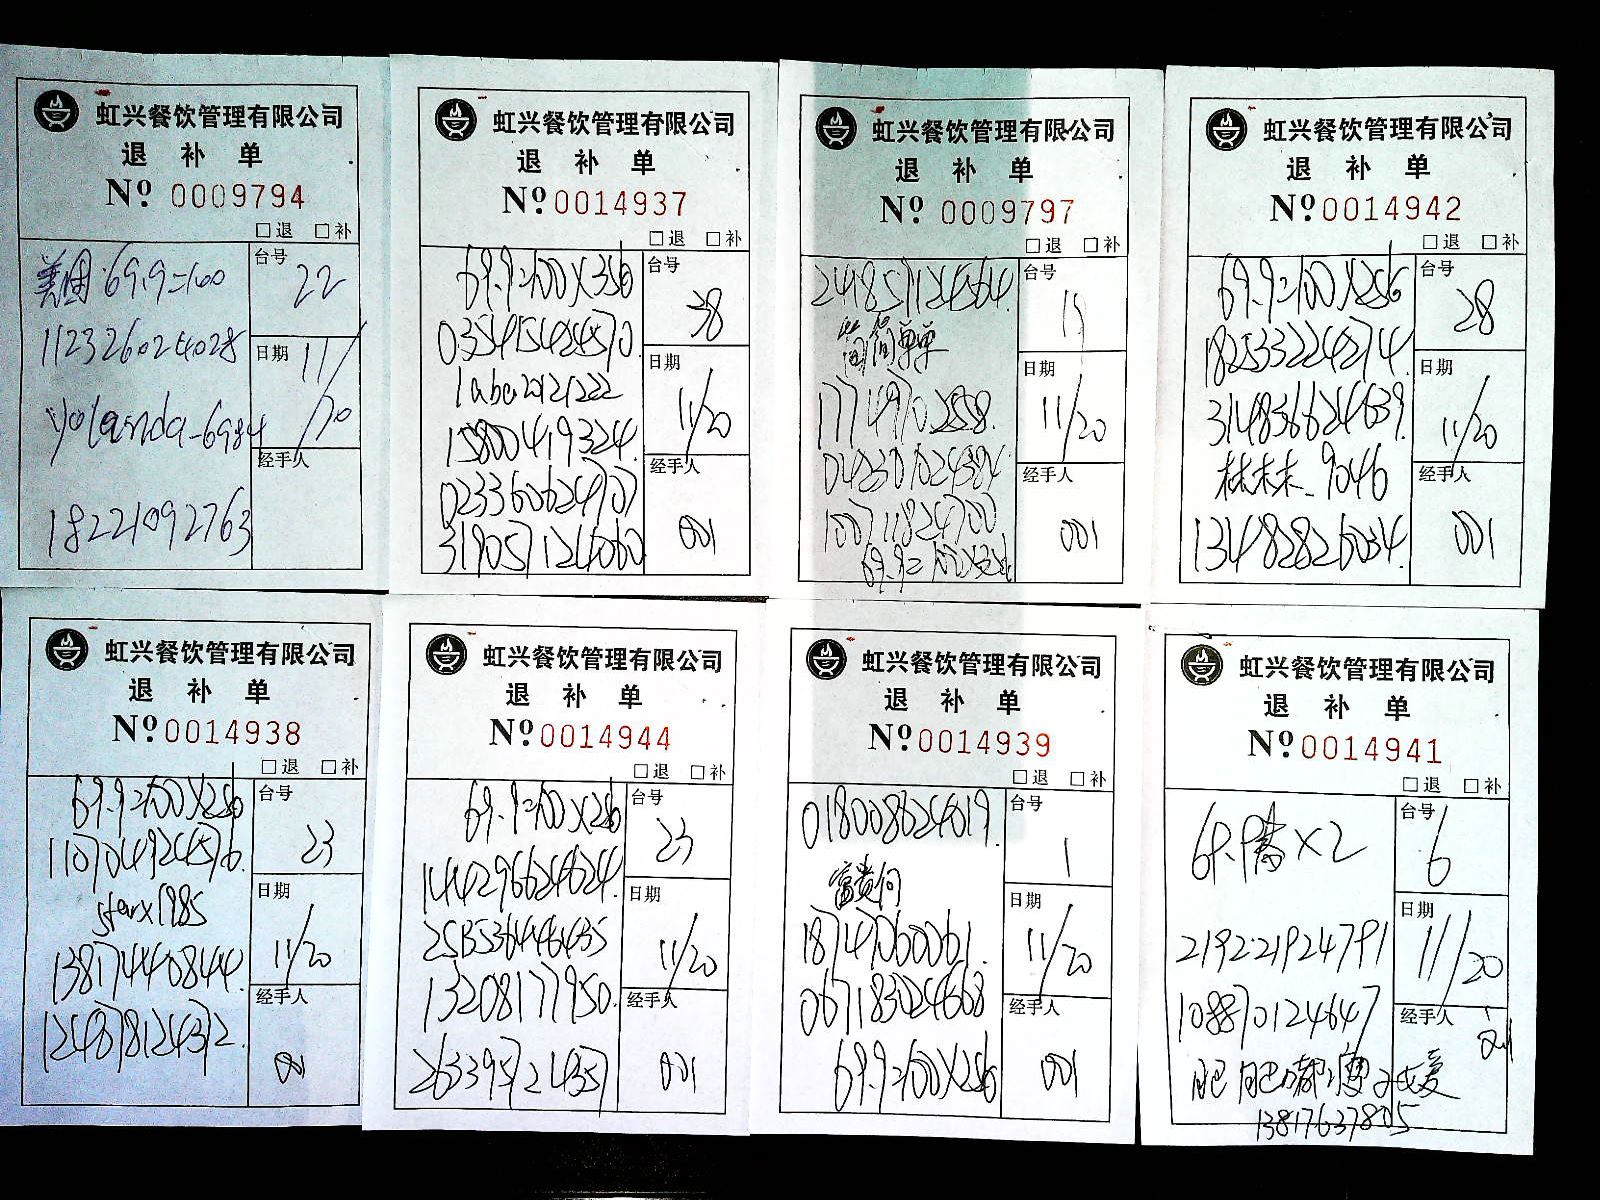 虹兴餐饮管理有限公司
退 补 单
Nº 0009794
□退 □补
美团 69.9=100
台号
22
112326024028
日期
11/20
yolanda-6984
经手人
18221092763
虹兴餐饮管理有限公司
退 补 单
Nº 0014937
□退 □补
69.9=100X3份
台号
28
035415424570
日期
11/20
15800419324
经手人
023360624707
319057124060
001
虹兴餐饮管理有限公司
退 补 单
Nº 0009797
□退 □补
241857124564
台号
简简单单
日期
11/20
经手人
042301024384
100711824700
001
69.9=100X3份
虹兴餐饮管理有限公司
退 补 单
Nº 0014942
□退 □补
69.9=100X2份
台号
28
182533224274
日期
314836624639
11/20
林林林-9046
经手人
13482826034
001
虹兴餐饮管理有限公司
退 补 单
Nº 0014938
□退 □补
69.9=100X2份
台号
23
110704924576
日期
starx1985
11/20
13817440844
经手人
124878124372
001
虹兴餐饮管理有限公司
退 补 单
Nº 0014944
□退 □补
69.9=100X2份
台号
23
144296624624
日期
11/20
13208177950
经手人
263395724357
001
虹兴餐饮管理有限公司
退 补 单
Nº 0014939
□退 □补
018008624019
台号
1
富贵何
日期
18747060061
11/20
067183024668
经手人
69.9=100X2份
001
虹兴餐饮管理有限公司
退 补 单
Nº 0014941
□退 □补
台号
69.9 X2
6
日期
219221924791
11/20
108870124647
经手人
13817637805